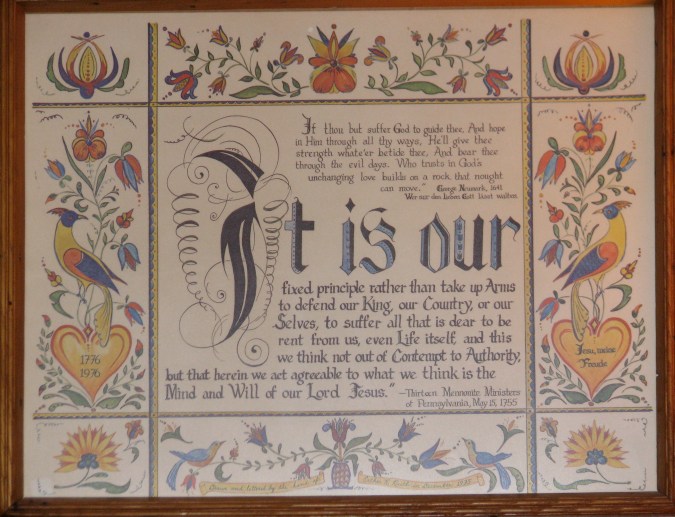 If thou but suffer God to guide thee, And hope
in Him through all thy ways, He'll give thee
strength whate'er betide thee, And bear thee
through the evil days. Who trusts in God's
unchanging love builds on a rock that nought
can move." George Neumark, 1641
Wer nur den lieben Gott lässt walten
It is our
fixed principle rather than take up Arms
to defend our King, our Country, or our
Selves, to suffer all that is dear to be
rent from us, even Life itself, and this
we think not out of Contempt to Authority,
but that herein we act agreeable to what we think is the
Mind and Will of our Lord Jesus."
—Thirteen Mennonite Ministers
of Pennsylvania, May 15, 1755
1776
1976
Jesu, meine
Freude
Drawn and